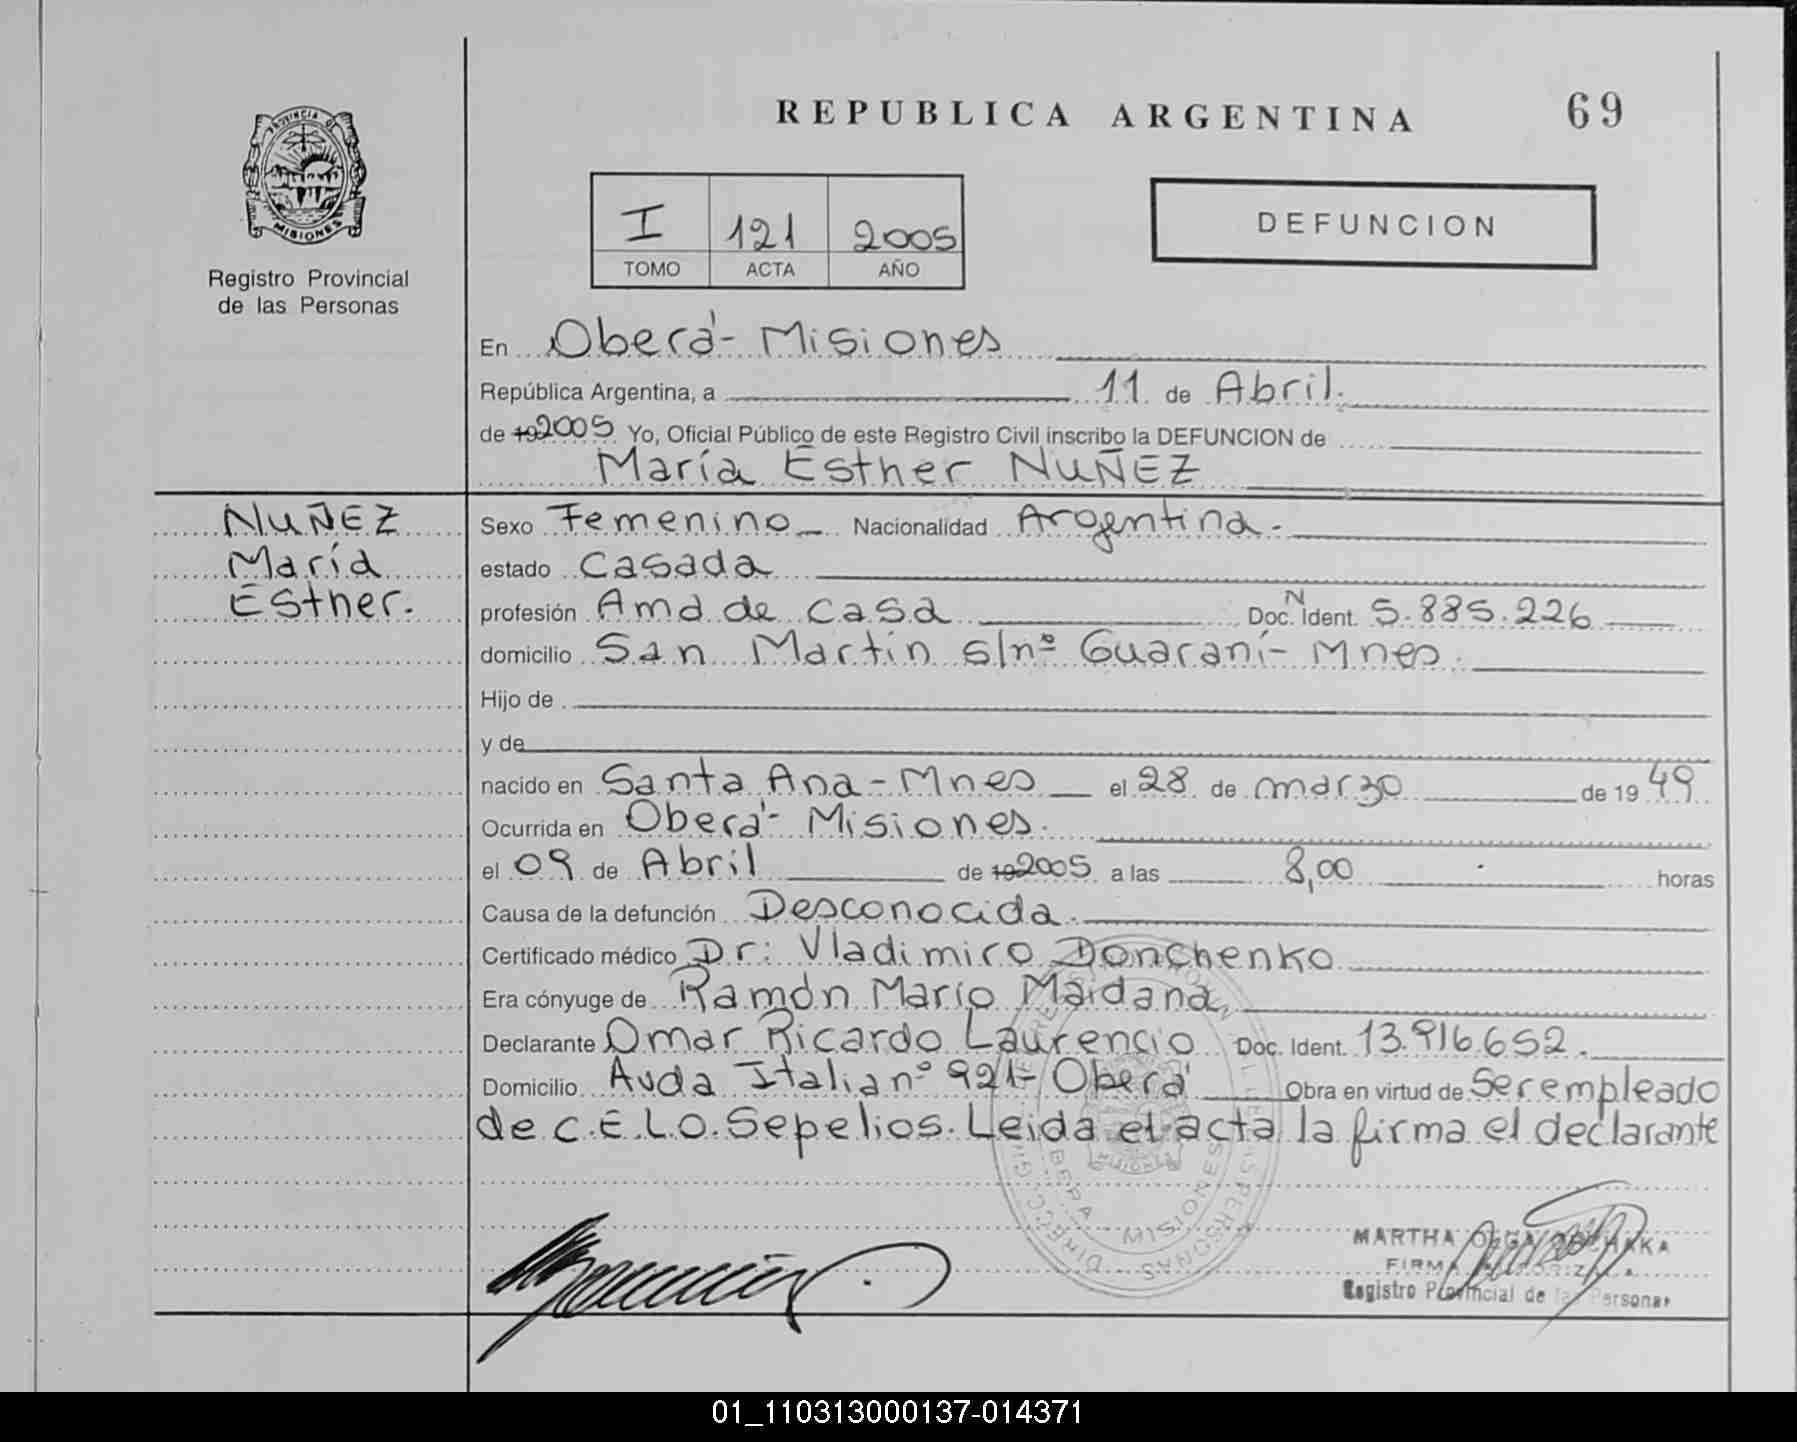 REPUBLICA ARGENTINA
69
PROVINCIA DE
MISIONES
Registro Provincial
de las Personas
I 121 2005
TOMO ACTA AÑO
DEFUNCION
En Oberá - Misiones
República Argentina, a 11 de Abril.
de 19 2005 Yo, Oficial Público de este Registro Civil inscribo la DEFUNCION de
María Esther NUÑEZ
NUÑEZ
María
Esther.
Sexo Femenino Nacionalidad Argentina.
estado Casada
profesión Ama de casa Doc. N Ident. 5.885.226
domicilio San Martín s/nº Guaraní - Mnes.
Hijo de
y de
nacido en Santa Ana - Mnes el 28 de marzo de 19 49
Ocurrida en Oberá - Misiones.
el 09 de Abril de 19 2005 a las 8,00 horas
Causa de la defunción Desconocida.
Certificado médico Dr: Vladimiro Donchenko
Era cónyuge de Ramón Mario Maidana
Declarante Omar Ricardo Laurencio Doc. Ident. 13.916.652.
Domicilio Avda Italia nº 921 - Oberá Obra en virtud de Ser empleado
de C.E.L.O. Sepelios. Leida el acta la firma el declarante
OBERA MISIONES
MARTHA OLGA
FIRMA AUTORIZADA
Registro Provincial de las Personas
01_110313000137-014371